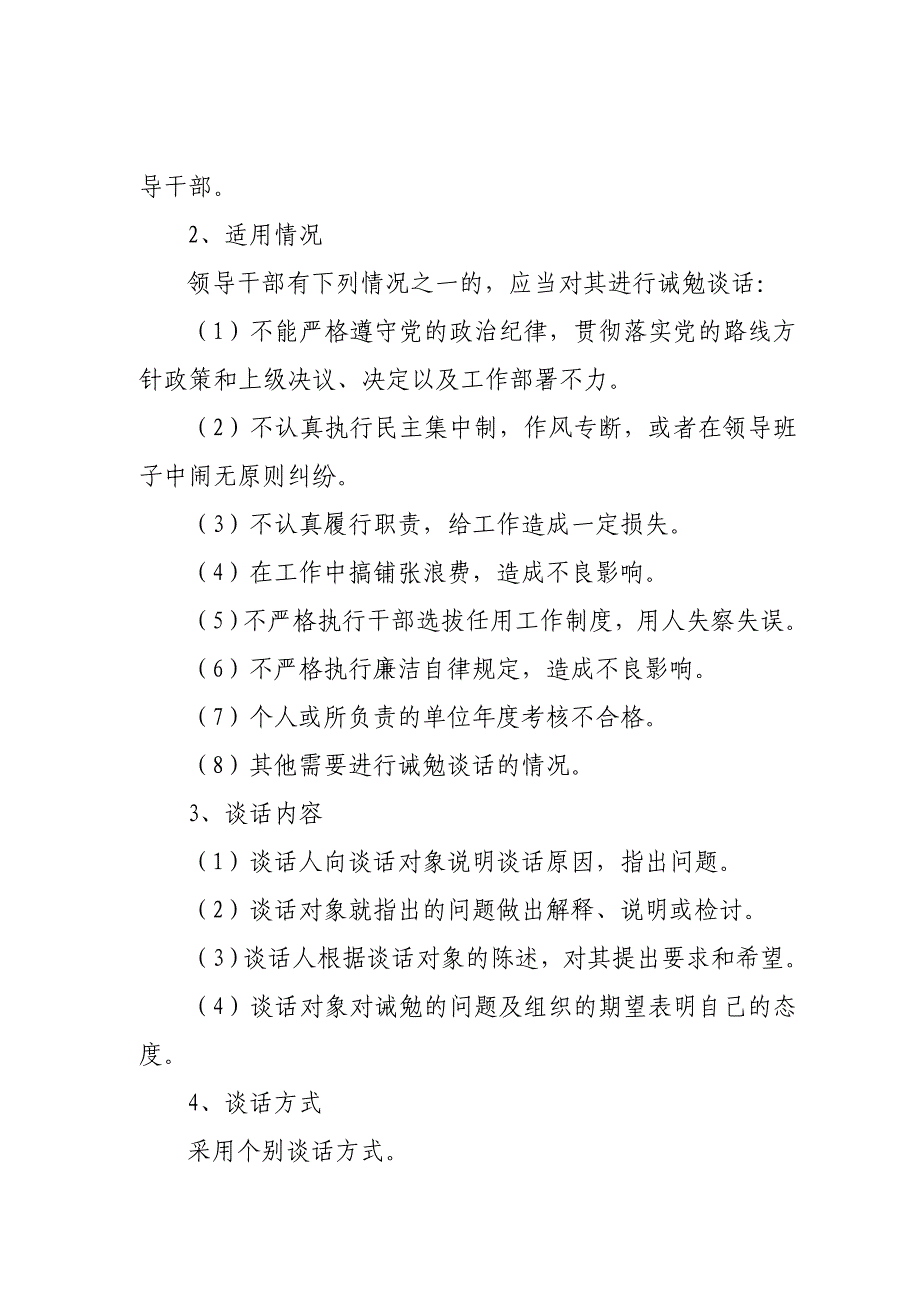 导干部。
2、适用情况
领导干部有下列情况之一的，应当对其进行诫勉谈话：
（1）不能严格遵守党的政治纪律，贯彻落实党的路线方
针政策和上级决议、决定以及工作部署不力。
（2）不认真执行民主集中制，作风专断，或者在领导班
子中闹无原则纠纷。
（3）不认真履行职责，给工作造成一定损失。
（4）在工作中搞铺张浪费，造成不良影响。
（5）不严格执行干部选拔任用工作制度，用人失察失误。
（6）不严格执行廉洁自律规定，造成不良影响。
（7）个人或所负责的单位年度考核不合格。
（8）其他需要进行诫勉谈话的情况。
3、谈话内容
（1）谈话人向谈话对象说明谈话原因，指出问题。
（2）谈话对象就指出的问题做出解释、说明或检讨。
（3）谈话人根据谈话对象的陈述，对其提出要求和希望。
（4）谈话对象对诫勉的问题及组织的期望表明自己的态
度。
4、谈话方式
采用个别谈话方式。